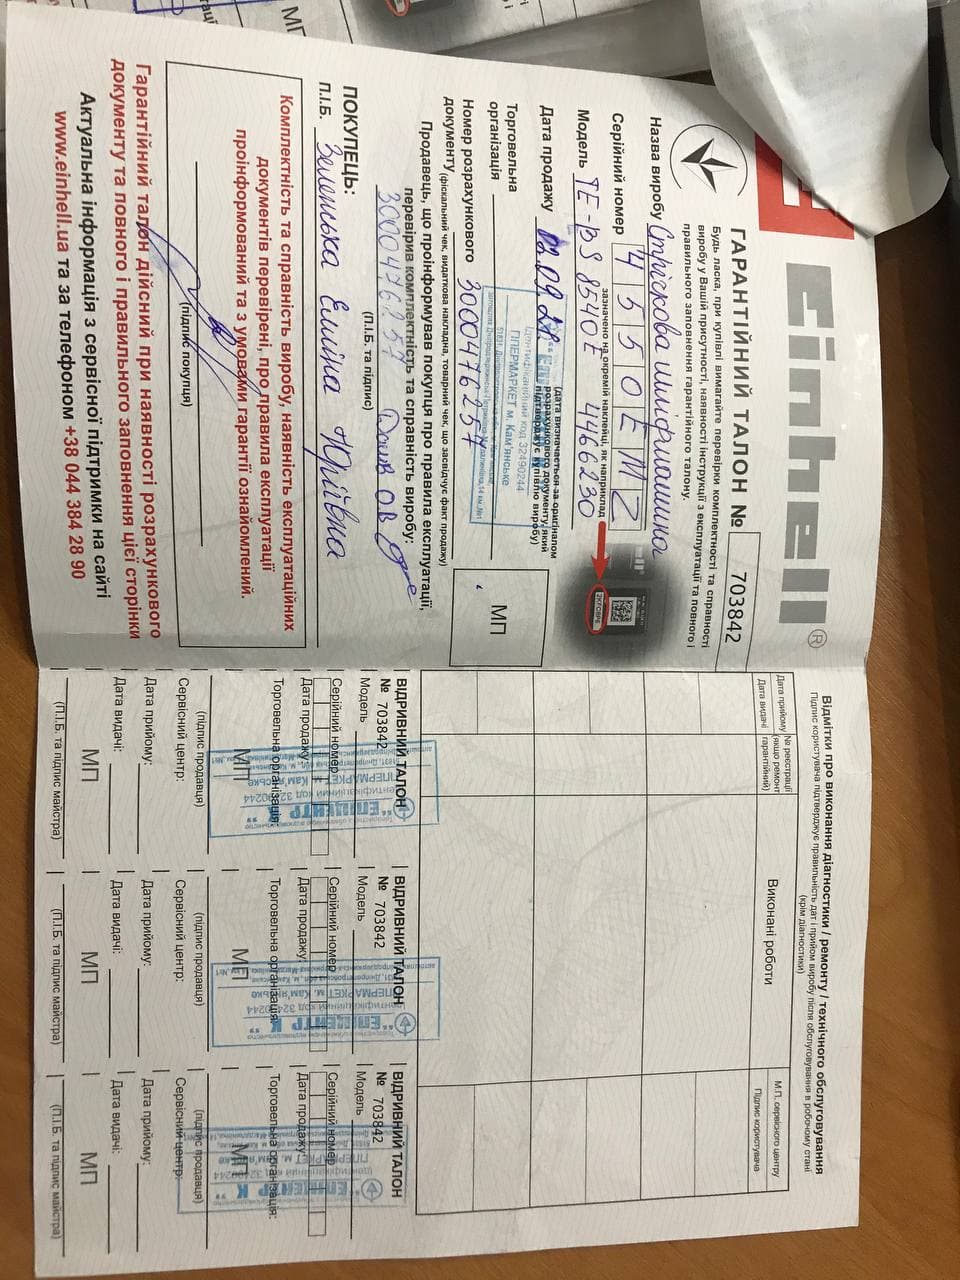 einhell®
ГАРАНТІЙНИЙ ТАЛОН № 703842
Будь ласка, при купівлі вимагайте перевірки комплектності та справності
виробу у Вашій присутності, наявності інструкції з експлуатації та повного і
правильного заповнення гарантійного талону.
Назва виробу Стрічкова шліфмашина
Серійний номер 4550EMZ
зазначено на окремій наклейці, як наприклад
Модель TE-BS 8540E 4466230
Дата продажу 02.09.21
(дата визначається за оригіналом
розрахункового документу, який
підтверджує купівлю виробу)
Торговельна
організація
ідентифікаційний код 32490244
ГІПЕРМАРКЕТ м. Кам'янське
Номер розрахункового 30004 76257
документу (фіскальний чек, видаткова накладна, товарний чек, що засвідчує факт продажу)
МП
Продавець, що проінформував покупця про правила експлуатації,
перевірив комплектність та справність виробу:
3000476257
(П.І.Б. та підпис)
ПОКУПЕЦЬ:
П.І.Б. Зеленька Еліна Юріївна
Комплектність та справність виробу, наявність експлуатаційних
документів перевірені, про правила експлуатації
проінформований та з умовами гарантії ознайомлений.
(підпис покупця)
Гарантійний талон дійсний при наявності розрахункового
документу та повного і правильного заповнення цієї сторінки
Актуальна інформація з сервісної підтримки на сайті
www.einhell.ua та за телефоном +38 044 384 28 90
Відмітки про виконання діагностики / ремонту / технічного обслуговування
Підпис користувача підтверджує правильність дат і прийом виробу після обслуговування в робочому стані
(крім діагностики)
Дата прийому
Дата видачі
№ реєстрації
(якщо ремонт
гарантійний)
Виконані роботи
М.П. сервісного центру
Підпис користувача
ВІДРИВНИЙ ТАЛОН
№ 703842
Модель
Серійний номер
Дата продажу:
Торговельна організація:
"ЕПІЦЕНТР
ГІПЕРМАРКЕТ м. Кам'янське
МП
(підпис продавця)
Сервісний центр:
Дата прийому:
Дата видачі:
МП
(П.І.Б. та підпис майстра)
ВІДРИВНИЙ ТАЛОН
№ 703842
Модель
Серійний номер
Дата продажу:
Торговельна організація:
"ЕПІЦЕНТР К"
МП
(підпис продавця)
Сервісний центр:
Дата прийому:
Дата видачі:
МП
(П.І.Б. та підпис майстра)
ВІДРИВНИЙ ТАЛОН
№ 703842
Модель
Серійний номер
Дата продажу:
Торговельна організація:
"ЕПІЦЕНТР К"
МП
(підпис продавця)
Сервісний центр:
Дата прийому:
Дата видачі:
МП
(П.І.Б. та підпис майстра)